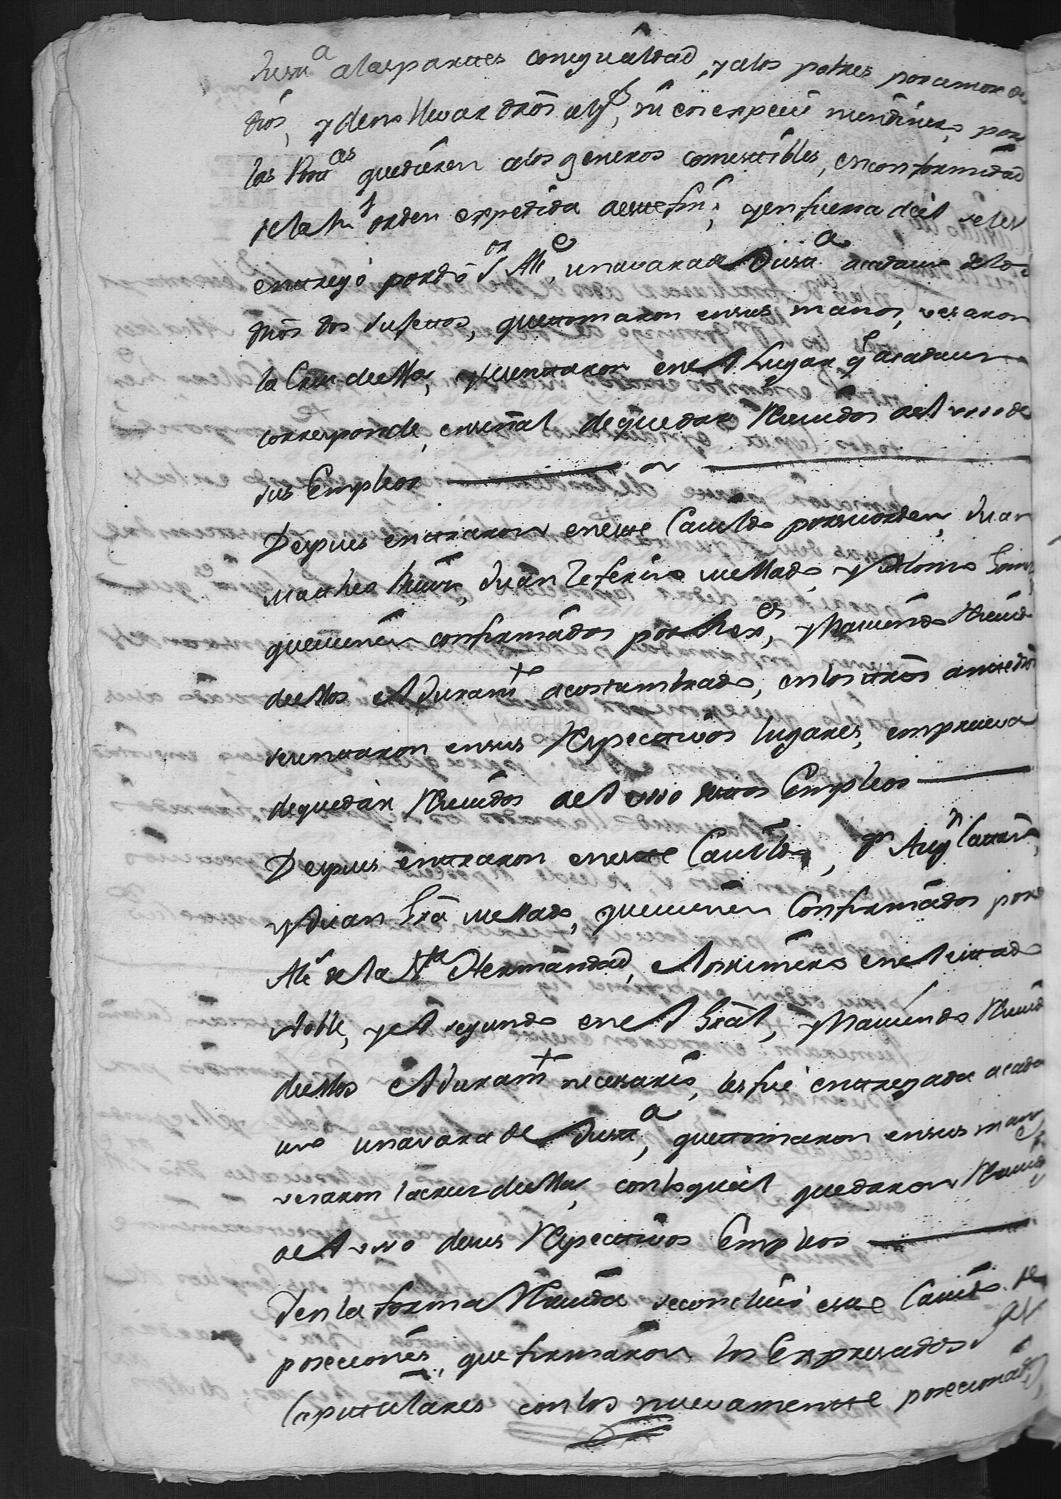 Justª a las partes con igualdad, y a los pobres por amor de
Dios, y de no llevar dros
las Posras que dieren a los generos comestibles, en conformidad
de la Rl orden expedida a este fin; y en fuerza de él se les
entregó por dho Sor Alce, una vara de Justª a cada uno de los
dhos dos sujettos, que tomaron en sus manos, vesaron
la Cruz de ella, y se sentaron en el Lugar q a cada un
corresponde, en señal de quedar Recividos al uso de
sus Empleos
Despues entraron en este Cavildo por su orden, Juan
Matheo Juan Zeferino Mellado, y Alonso
que vienen confirmados por Rexes, y Haviendo Recivido
de ellos el Juramto acostumbrado, en los dhos
se sentaron en sus Respectivos lugares, en prueva
de quedar Recividos al uso de sus Empleos
Despues entraron en este Cavildo, Dn Agn
y Juan Grã Mellado, que vienen Confirmados por
Ale de la Sta Hermandad, el primero en el estado
Noble, y el segundo en el Gral, y Haviendo Recivido
de ellos el Juramto necesario, les fué entregada a cada
uno una vara de Justª, que tomaron en sus manos
vesaron la cruz de ella, con lo qual quedaron Recividos
al uso de sus Respectivos Empleos
Y en la forma Referida se concluió este Cavildo de
poseciones, que firmaron los Expresados Sres
Capitulares con los nuevamente posecionados